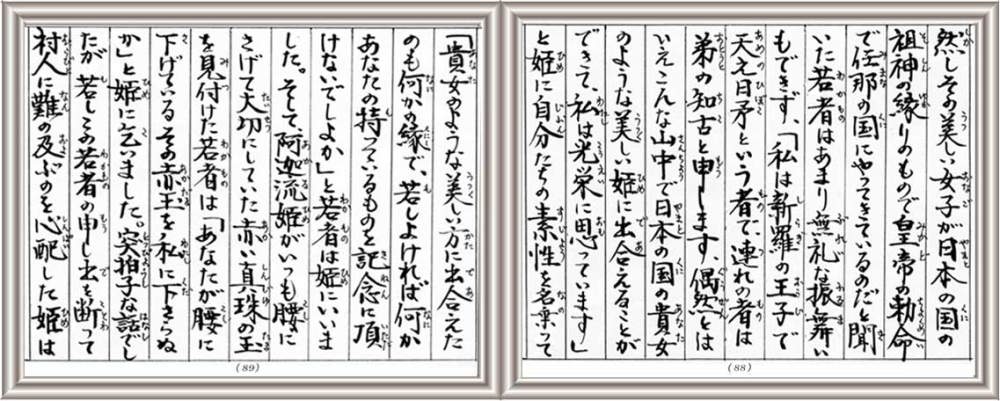 然しその美しい女子が日本の国の
祖神の縁りのもので皇帝の勅命
で任那の国にやってきているのだと聞
いた若者はあまり無礼な振舞い
もできず、「私は新羅の王子で
天之日矛という者で、連れの者は
弟の知古と申します、偶然とは
いえこんな山中で日本の国の貴女
のような美しい姫に出合えることが
できて、私は光栄に思っています」
と姫に自分たちの素性を名乗って
(88)
「貴女のような美しい方に出合えた
のも何かの縁で、若しよければ何か
あなたの持っているものを記念に頂
けないでしよか」と若者は姫にいいま
した。そして、阿迦流姫がいつも腰に
さげて大切にしていた赤い真珠の玉
を見付けた若者は「あなたが腰に
下げているその赤玉を私に下さらぬ
か」と姫に乞いました。突拍子な話でし
たが若しこの若者の申し出を断って
村人に難の及ぶのを心配した姫は
(89)